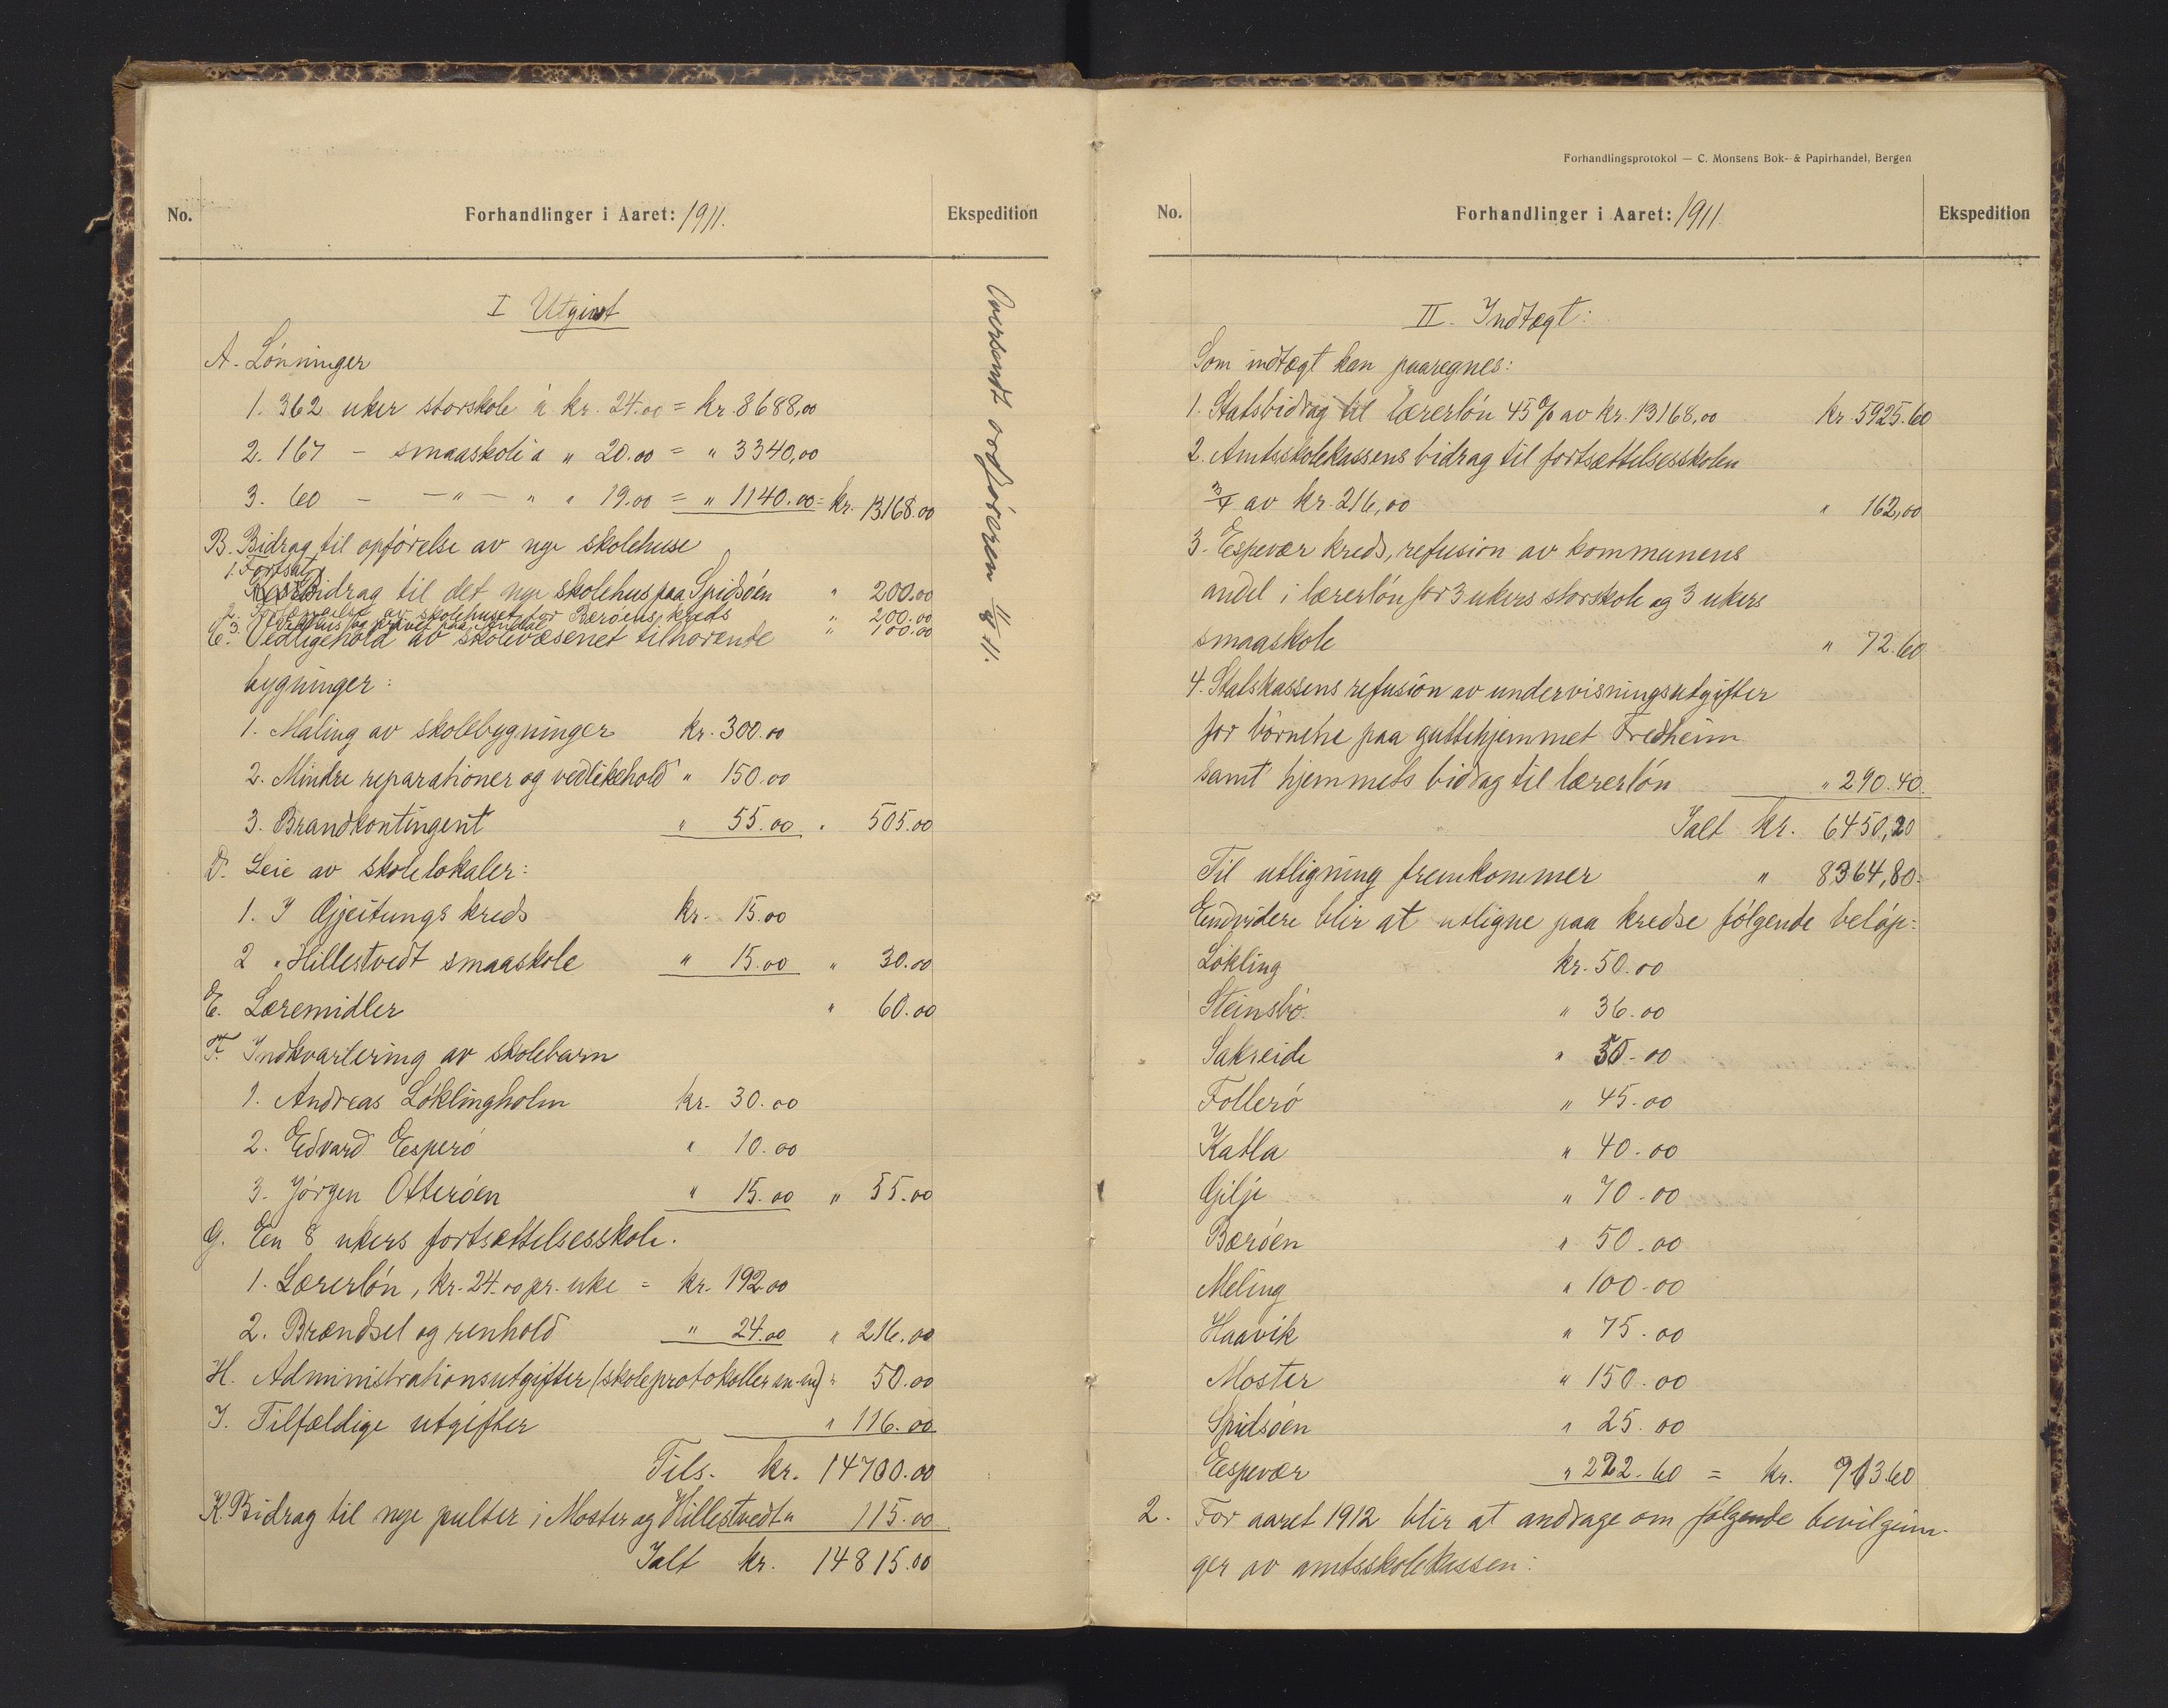 No.
Forhandlinger i Aaret: 1911.
Ekspedition
I Utgivt
A. Lönninger
1. 362 uker storskole à kr. 24.00 = kr. 8688,00
2. 167 — smaaskole à " 20.00 = " 3340,00
3. 60 — — " — " " 19.00 = " 1140.00 = kr. 13168.00
B. Bidrag til opförelse av nye skolehuse
1. Fortsat
Bidrag til det nye skolehus paa Spidsöen " 200.00
2. Forlængelse av skolehuset for Beröens kreds " 200.00
3. Vedhus og privet paa " 100.00
C. Vedligehold av skolevæsenet tilhörende
bygninger:
1. Maling av skolebygninger kr. 300.00
2. Mindre reparationer og vedlikehold " 150.00
3. Brandkontingent " 55.00 " 505.00
D. Leie av skolelokaler:
1. I Gjeitungs kreds kr. 15.00
2 " Hillestvedt smaaskole " 15.00 " 30.00
E. Læremidler " 60.00
F. Indkvartering av skolebarn
1. Andreas Löklingholm kr. 30.00
2. Edvard Esperö " 10.00
3. Jörgen Otteröen " 15.00 " 55.00
G. En 8 ukers fortsættelsesskole.
1. Lærerlön, kr. 24.00 pr. uke = kr. 192.00
2. Brændsel og renhold " 24.00 " 216.00
H. Administrationsutgifter (skoleprotokoller m.m.) " 50.00
I. Tilfældige utgifter " 116.00
Tils. kr. 14700.00
K. Bidrag til nye pulter i Moster og Hillestvedt " 115.00
Ialt kr. 14815.00
Oversendt ordföreren 11/8 11.
Forhandlingsprotokol — C. Monsens Bok- & Papirhandel, Bergen
No.
Forhandlinger i Aaret: 1911
Ekspedition
II. Indtægt:
Som indtægt kan paaregnes:
1. Statsbidrag til lærerlön 45 % av kr. 13168,00 kr. 5925.60
2. Amtsskolekassens bidrag til fortsættelsesskolen
3/4 av kr. 216,00 " 162,00
3. Espevær kreds, refusion av kommunens
andel i lærerlön for 3 ukers storskole og 3 ukers
smaaskole " 72.60
4. Statskassens refusion av undervisningsutgifter
for börnene paa guttehjemmet Fredheim
samt hjemmets bidrag til lærerlön " 290.40
Ialt kr. 6450,20
Til utligning fremkommer " 8364,80.
Endvidere blir at utligne paa kredse fölgende belöp:
Lökling kr. 50.00
Steinsbö. " 36.00
Sakseide " 50.00
Follerö " 45.00
Katla " 40.00
Gilje " 70.00
Beröen " 50.00
Meling " 100.00
Haavik " 75.00
Moster " 150.00
Spidsöen " 25.00
Espevær " 222.60 = kr. 913.60
2. For aaret 1912 blir at andrage om fölgende bevilgnin-
ger av amtsskolekassen: